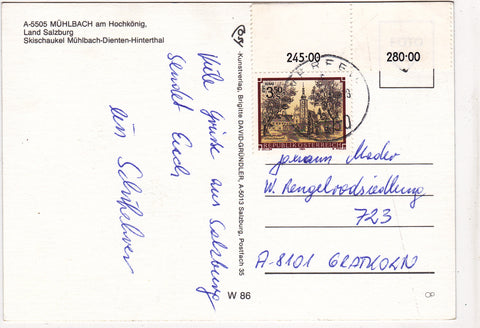 A-5505 MÜHLBACH am Hochkönig,
Land Salzburg
Skischaukel Mühlbach-Dienten-Hinterthal
Viele Grüße aus Salzburg
sendet Euch
ein
-Kunstverlag, Brigitte DAVID-GRÜNDLER, A-5013 Salzburg, Postfach 35
W 86
245·00
280·00
3.50
REPUBLIK ÖSTERREICH
Johann Mader
W.
723
A-8101 GRATKORN